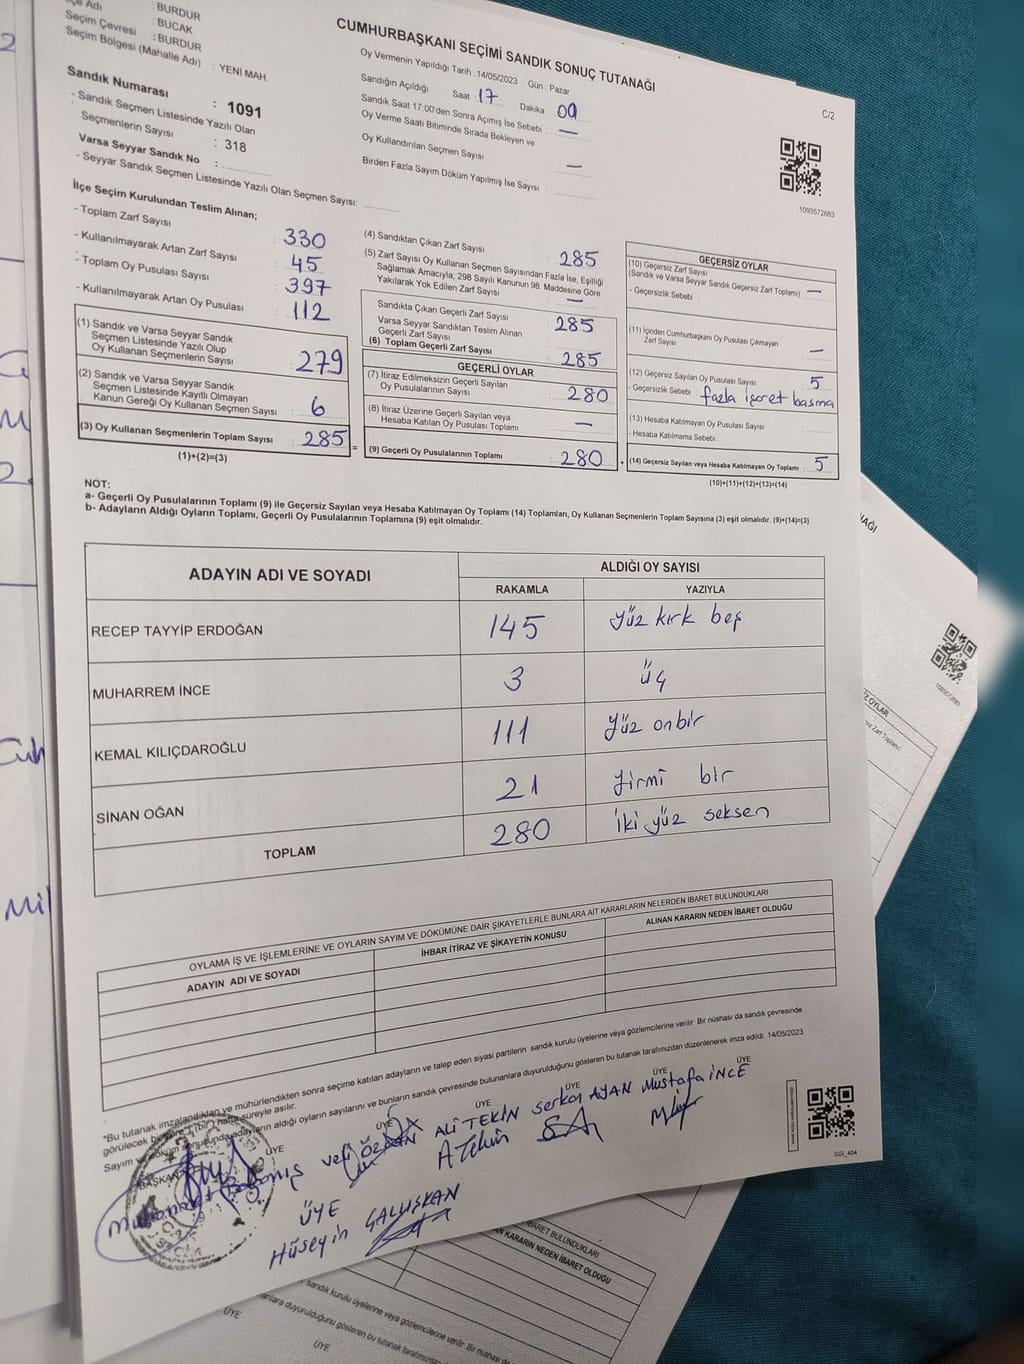 İlçe Adı : BURDUR
: BUCAK
Seçim Çevresi : BURDUR
Seçim Bölgesi (Mahalle Adı) : YENİ MAH.
Sandık Numarası : 1091
- Sandık Seçmen Listesinde Yazılı Olan
Seçmenlerin Sayısı : 318
Varsa Seyyar Sandık No :
- Seyyar Sandık Seçmen Listesinde Yazılı Olan Seçmen Sayısı:
CUMHURBAŞKANI SEÇİMİ SANDIK SONUÇ TUTANAĞI
Oy Vermenin Yapıldığı Tarih :14/05/2023 Gün : Pazar
Sandığın Açıldığı Saat : 17 Dakika : 09
Sandık Saat 17:00'den Sonra Açımış İse Sebebi : —
Oy Verme Saati Bitiminde Sırada Bekleyen ve
Oy Kullandırılan Seçmen Sayısı : —
Birden Fazla Sayım Döküm Yapılmış İse Sayısı :
C/2
1093572683
İlçe Seçim Kurulundan Teslim Alınan;
- Toplam Zarf Sayısı : 330
- Kullanılmayarak Artan Zarf Sayısı : 45
- Toplam Oy Pusulası Sayısı : 397
- Kullanılmayarak Artan Oy Pusulası : 112
(1) Sandık ve Varsa Seyyar Sandık
Seçmen Listesinde Yazılı Olup
Oy Kullanan Seçmenlerin Sayısı : 279
(2) Sandık ve Varsa Seyyar Sandık
Seçmen Listesinde Kayıtlı Olmayan
Kanun Gereği Oy Kullanan Seçmen Sayısı : 6
(3) Oy Kullanan Seçmenlerin Toplam Sayısı : 285 =
(1)+(2)=(3)
(4) Sandıktan Çıkan Zarf Sayısı : 285
(5) Zarf Sayısı Oy Kullanan Seçmen Sayısından Fazla İse, Eşitliği
Sağlamak Amacıyla, 298 Sayılı Kanunun 98. Maddesine Göre
Yakılarak Yok Edilen Zarf Sayısı : —
Sandıkta Çıkan Geçerli Zarf Sayısı : 285
Varsa Seyyar Sandıktan Teslim Alınan
Geçerli Zarf Sayısı
(6) Toplam Geçerli Zarf Sayısı : 285
GEÇERLİ OYLAR
(7) İtiraz Edilmeksizin Geçerli Sayılan
Oy Pusulalarının Sayısı : 280
(8) İtiraz Üzerine Geçerli Sayılan veya
Hesaba Katılan Oy Pusulası Toplamı : —
(9) Geçerli Oy Pusulalarının Toplamı : 280 +
GEÇERSİZ OYLAR
(10) Geçersiz Zarf Sayısı
(Sandık ve Varsa Seyyar Sandık Geçersiz Zarf Toplamı) : —
- Geçersizlik Sebebi :
(11) İçinden Cumhurbaşkanı Oy Pusulası Çıkmayan
Zarf Sayısı : —
(12) Geçersiz Sayılan Oy Pusulası Sayısı : 5
- Geçersizlik Sebebi : fazla işaret basma
(13) Hesaba Katılmayan Oy Pusulası Sayısı :
- Hesaba Katılmama Sebebi :
(14) Geçersiz Sayılan veya Hesaba Katılmayan Oy Toplamı : 5
(10)+(11)+(12)+(13)=(14)
NOT:
a- Geçerli Oy Pusulalarının Toplamı (9) ile Geçersiz Sayılan veya Hesaba Katılmayan Oy Toplamı (14) Toplamları, Oy Kullanan Seçmenlerin Toplam Sayısına (3) eşit olmalıdır. (9)+(14)=(3)
b- Adayların Aldığı Oyların Toplamı, Geçerli Oy Pusulalarının Toplamına (9) eşit olmalıdır.
ADAYIN ADI VE SOYADI ALDIĞI OY SAYISI
RAKAMLA YAZIYLA
RECEP TAYYİP ERDOĞAN 145 yüz kırk beş
MUHARREM İNCE 3 üç
KEMAL KILIÇDAROĞLU 111 yüz onbir
SİNAN OĞAN 21 yirmi bir
TOPLAM 280 iki yüz seksen
OYLAMA İŞ VE İŞLEMLERİNE VE OYLARIN SAYIM VE DÖKÜMÜNE DAİR ŞİKAYETLERLE BUNLARA AİT KARARLARIN NELERDEN İBARET BULUNDUKLARI
ADAYIN ADI VE SOYADI İHBAR İTİRAZ VE ŞİKAYETİN KONUSU ALINAN KARARIN NEDEN İBARET OLDUĞU
"Bu tutanak imzalandıktan ve mühürlendikten sonra seçime katılan adayların ve talep eden siyasi partilerin sandık kurulu üyelerine veya gözlemcilerine verilir. Bir nüshası da sandık çevresinde
görülecek bir yere (bir) hafta süreyle asılır.
Sayım ve döküm sonucunda adayların aldığı oyların sayılarını ve bunların sandık çevresinde bulunanlara duyurulduğunu gösteren bu tutanak tarafımızdan düzenlenerek imza edildi. 14/05/2023
BAŞKAN ÜYE ÜYE ÜYE ÜYE ÜYE
Veli ÖZCAN ALİ TEKİN serkan AYAN Mustafa İNCE
A Tekin
ÜYE
Hüseyin ÇALIŞKAN
GSI_404
1093572683
İBARET BULUNDUKLARI
KARARIN NEDEN İBARET OLDUĞU
sandık kurulu üyelerine veya gözlemcilerine verilir. Bir nüshası da
duyurulduğunu gösteren bu tutanak tarafımızdan
ÜYE ÜYE